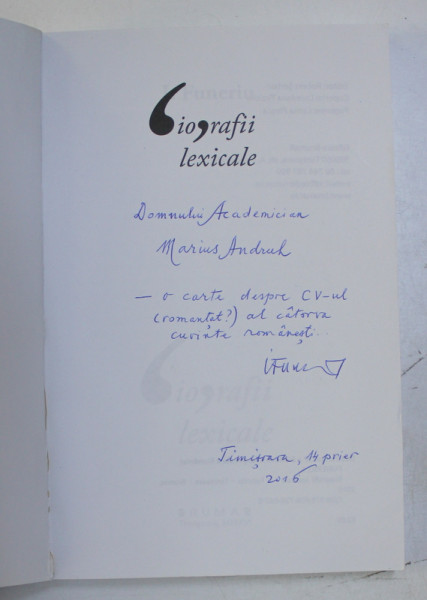 Biografii
lexicale
Domnului Academician
Marius Andruh
— o carte despre CV-ul
(romanțat?) al câtorva
cuvinte românești...
Timișoara, 14 prier
2016